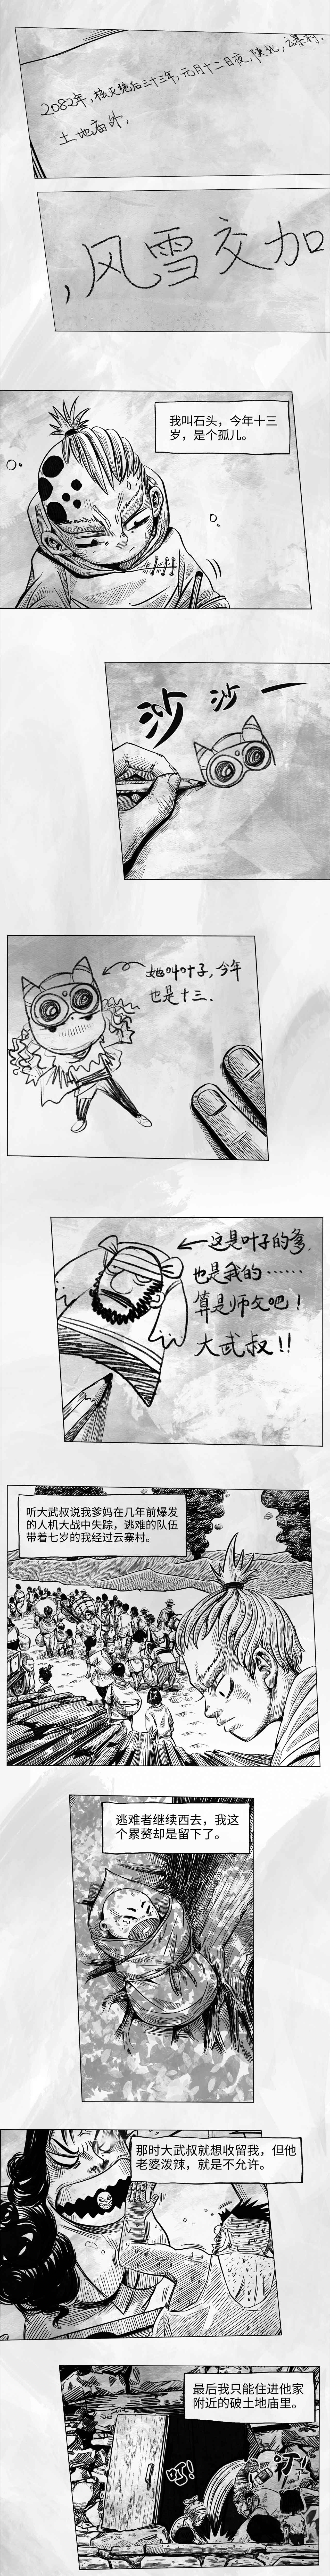 2082年,核灭绝后三十三年,元月十二日夜,陕北,云寨村.
土地庙外,
,风雪交加
我叫石头，今年十三
岁，是个孤儿。
沙 沙 一
她叫叶子,今年
也是十三.
这是叶子的爹,
也是我的……
算是师父吧!
大武叔!!
听大武叔说我爹妈在几年前爆发
的人机大战中失踪，逃难的队伍
带着七岁的我经过云寨村。
逃难者继续西去，我这
个累赘却是留下了。
那时大武叔就想收留我，但他
老婆泼辣，就是不允许。
最后我只能住进他家
附近的破土地庙里。
叮!
叮!